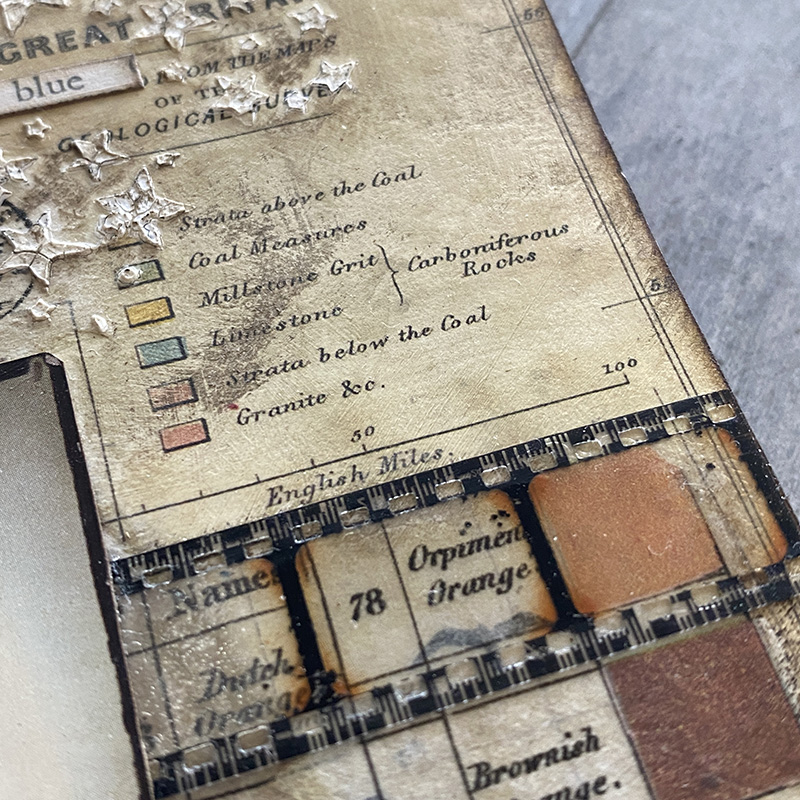 GREAT
blue
FROM THE MAPS
OF THE
GEOLOGICAL SURVEY
55
Strata above the Coal
Coal Measures
Millstone Grit
Limestone
Carboniferous
Rocks
Strata below the Coal
Granite &c.
5
50
100
English Miles.
Names
78
Orpiment
Orange
Dutch
Orange
Brownish
ange.